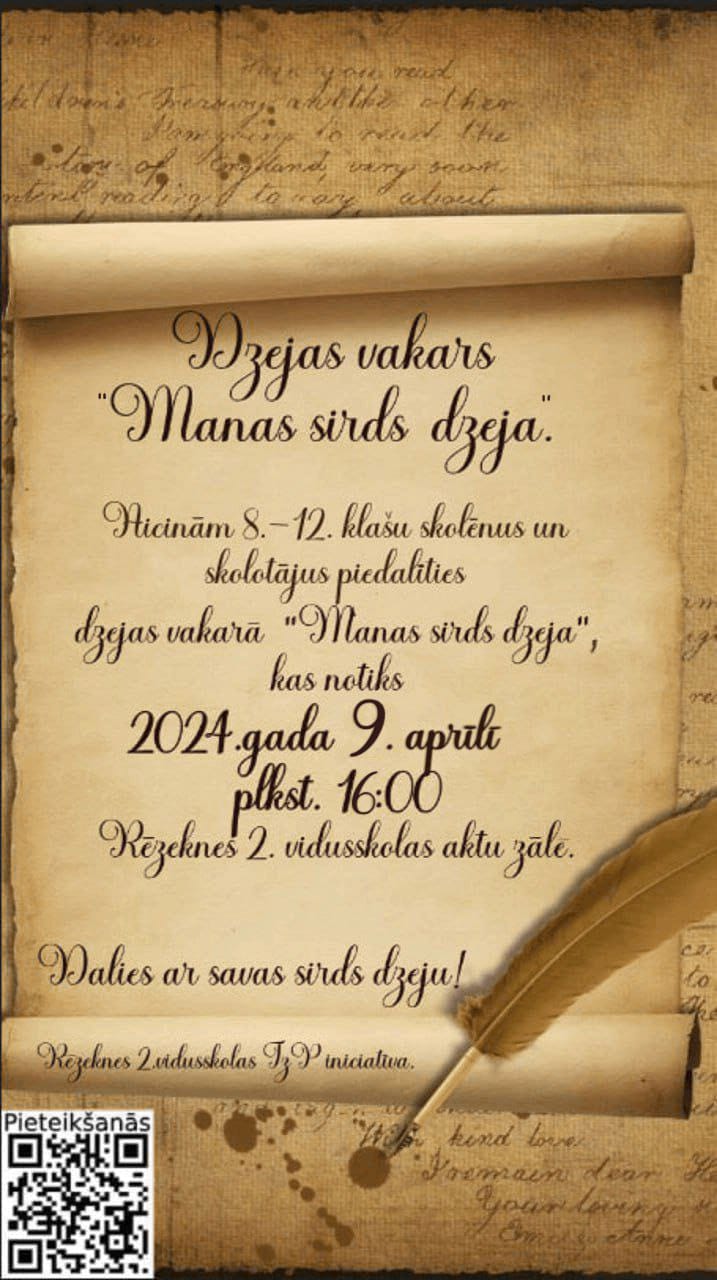 Have you read
children's Treasury and the other
I'm going to read the
story of England, very soon
reading to say about
Dzejas vakars
"Manas sirds dzeja".
Aicinām 8.-12. klašu skolēnus un
skolotājus piedalīties
dzejas vakarā "Manas sirds dzeja",
kas notiks
2024.gada 9. aprīlī
plkst. 16:00
Rēzeknes 2. vidusskolas aktu zālē.
Dalies ar savas sirds dzeju!
Rēzeknes 2.vidusskolas TzP iniciatīva.
Pieteikšanās
With kind love
I remain dear
Your loving